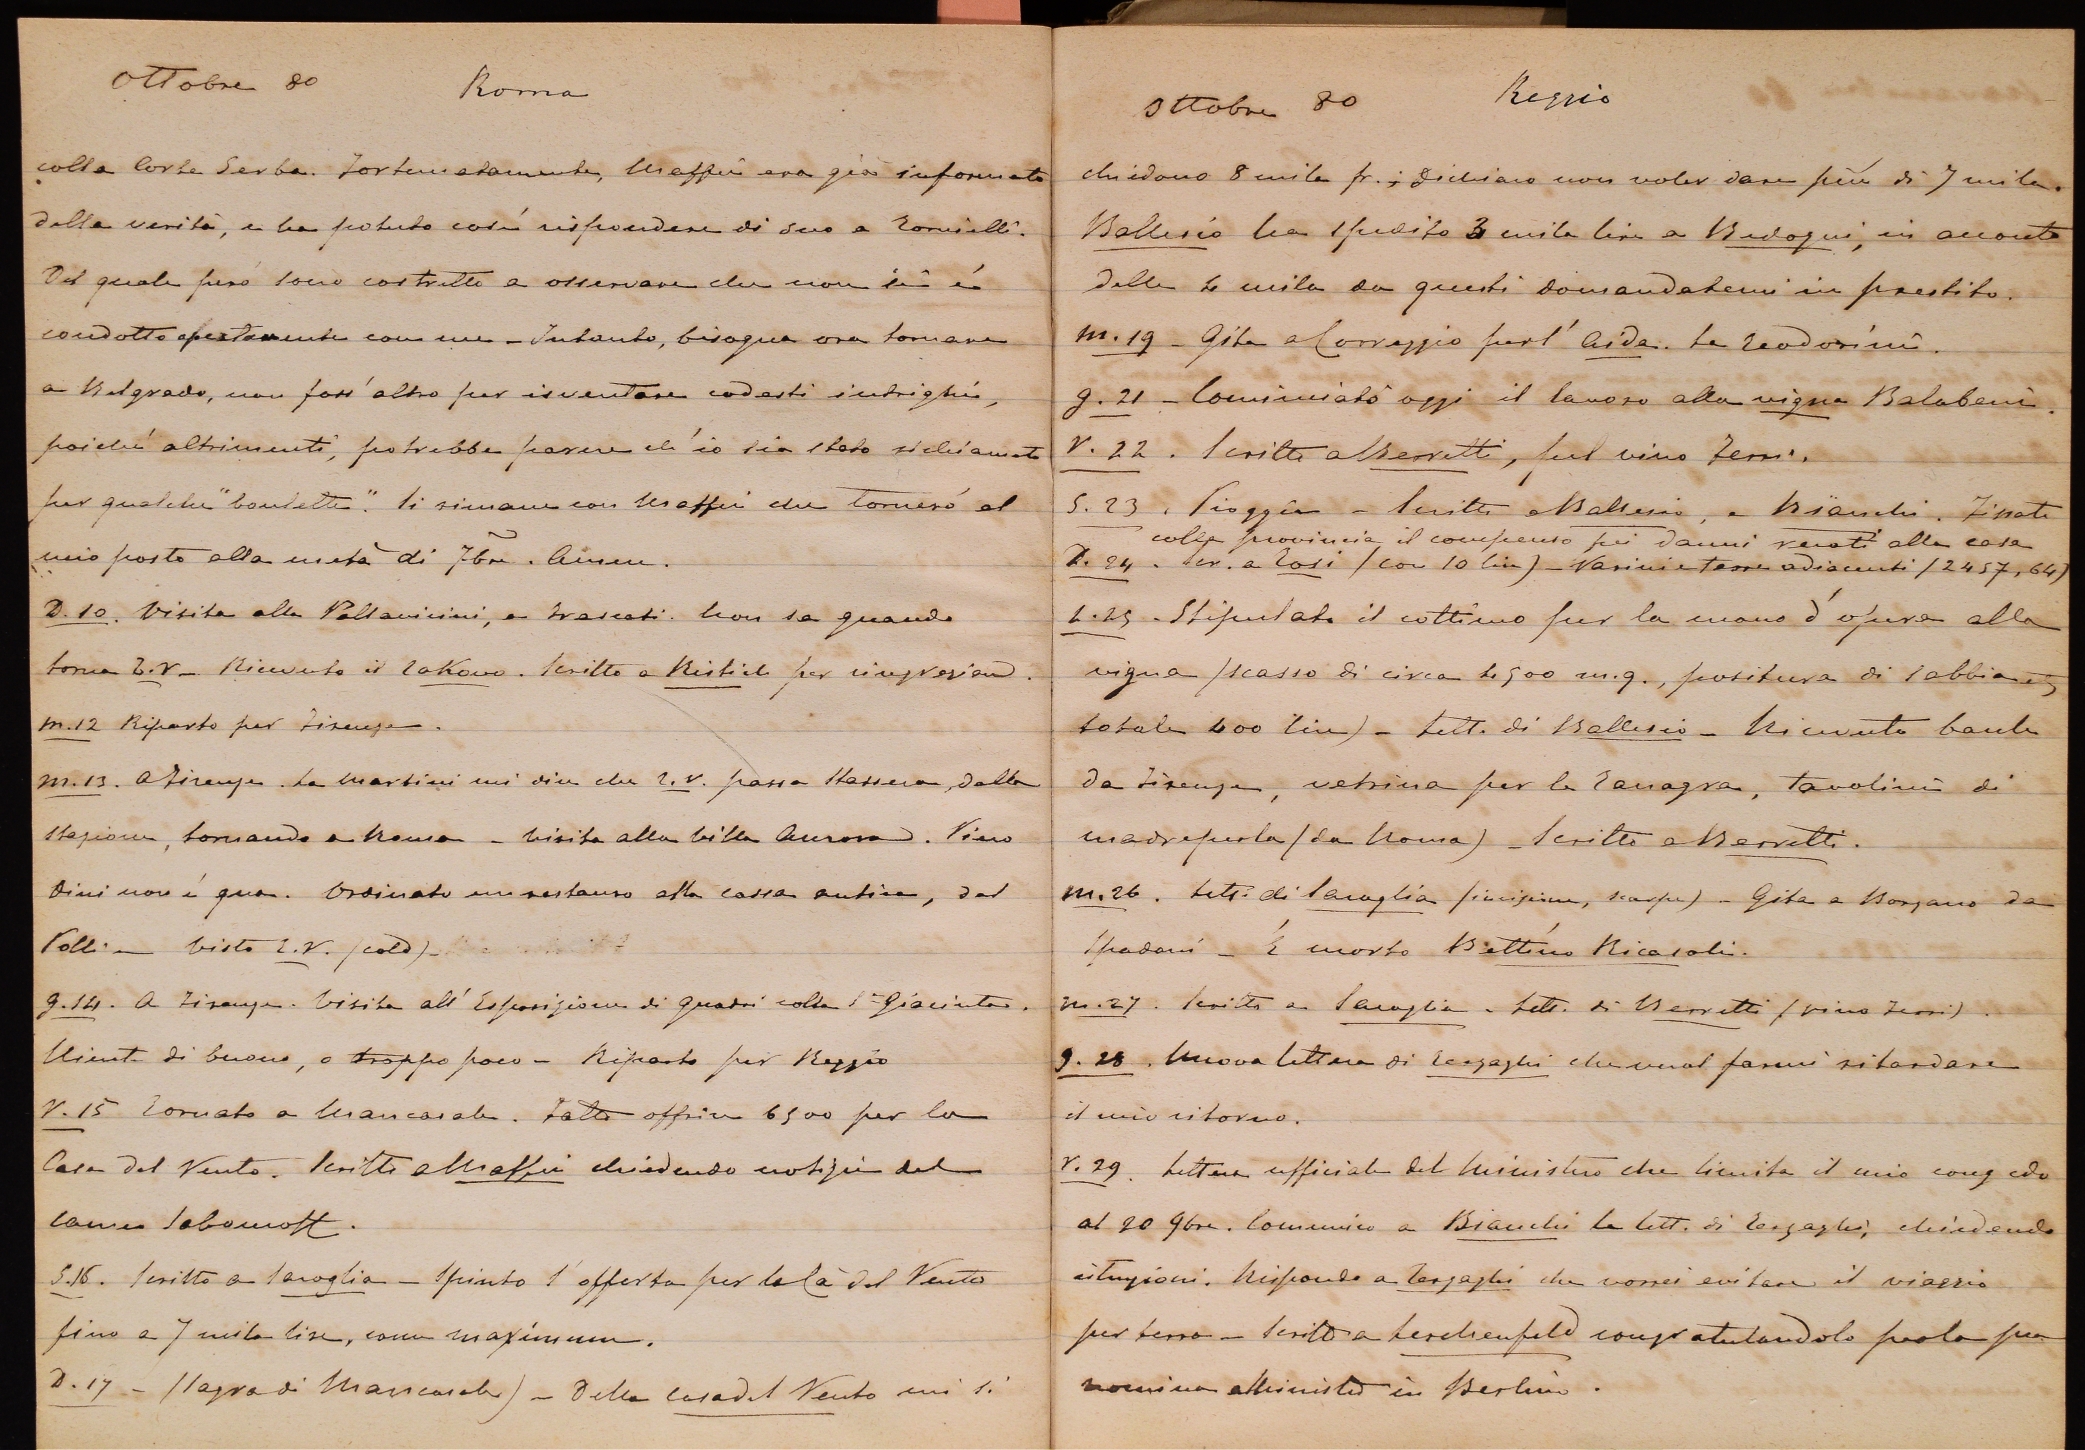 Ottobre 80 Roma
colla Corte Serba. Fortunatamente, Maffei era già informato
della verità, e ha potuto così rispondere di suo a Tornielli.
Del quale però sono costretto a osservare che non si è
condotto apertamente con me - Intanto, bisogna ora tornare
a Belgrado, non foss' altro per isventare codesti intrighi,
poiché altrimenti, potrebbe parere ch' io sia stato richiamato
per qualche "boulette". Si rimane con Maffei che tornerò al
mio posto alla metà di 9bre. Amen.
D. 10. Visita alla Pallavicini, a Frascati. Non sa quando
torna E.V - Ricevuto il Takovo. Scritto a Ristich per ringraziare.
M. 12 Riparto per Firenze.
M. 13. A Firenze. La Martini mi dice che E.V. passa stassera, dalla
stazione, tornando a Roma - Visita alla Villa Aurora. Vino
Dini non è qua. Ordinato un restauro alla cassa antica, dal
Polli - Visto E.V. (cold) -
G. 14. A Firenze. Visita all' Esposizione di quadri colla S.a Giacinta.
Niente di buono, o troppo poco - Riparto per Reggio
V. 15 Tornato a Mancasale. Fatto offrire 6500 per la
Casa del Vento. Scritto a Maffei chiedendo notizie del
S. 16. Scritto a Saroglia - Spinto l' offerta per la Ca del Vento
fino a 7 mila lire, come maximum.
D. 17 - (Sagra di Mancasale) - Della casa del Vento mi si
Ottobre 80 Reggio
chiedono 8 mila fr.; dichiaro non voler dare più di 7 mila.
Ballesio ha spedito 3 mila lire a Bedogni, in acconto
delle 4 mila da questi domandatemi in prestito.
M. 19 - Gita a Correggio per l' Aida. La Teodorini.
G. 21 - Cominciato oggi il lavoro alla vigna Balabeni.
V. 22. Scritto a Berretti, pel vino Ferri.
S. 23. Pioggia - Scritto a Ballesio, a Bianchi. Fissato
colla provincia il compenso pei danni recati alla casa
D. 24. Scr. a Tosi (con 10 lire) - Varini e terre adiacenti (2457,64)
L. 25 - Stipulato il cottimo per la mano d' opera alla
vigna (scasso di circa 4500 m.q., positura di sabbia etc
totale 400 lire) - Lett. di Ballesio - Ricevuto baule
da Firenze, vetrina per le Tanagra, tavolini di
madreperla (da Roma) - Scritto a Berretti.
M. 26. Lett. di Saroglia (incisione, scarpe) - Gita a Borzano da
Spadoni - È morto Bettino Ricasoli.
M. 27. Scritto a Saroglia - Lett. di Berretti (vino Ferri).
G. 28. Nuova lettera di Terzaghi che vuol farmi ritardare
il mio ritorno.
V. 29. Lettera ufficiale del Ministro che limita il mio congedo
al 20 9bre. Comunico a Bianchi la lett. di Terzaghi, chiedendo
istruzioni. Rispondo a Terzaghi che vorrei evitare il viaggio
per terra - Scritto a Lerchenfeld congratulandolo per la sua
nomina a Ministro in Berlino.